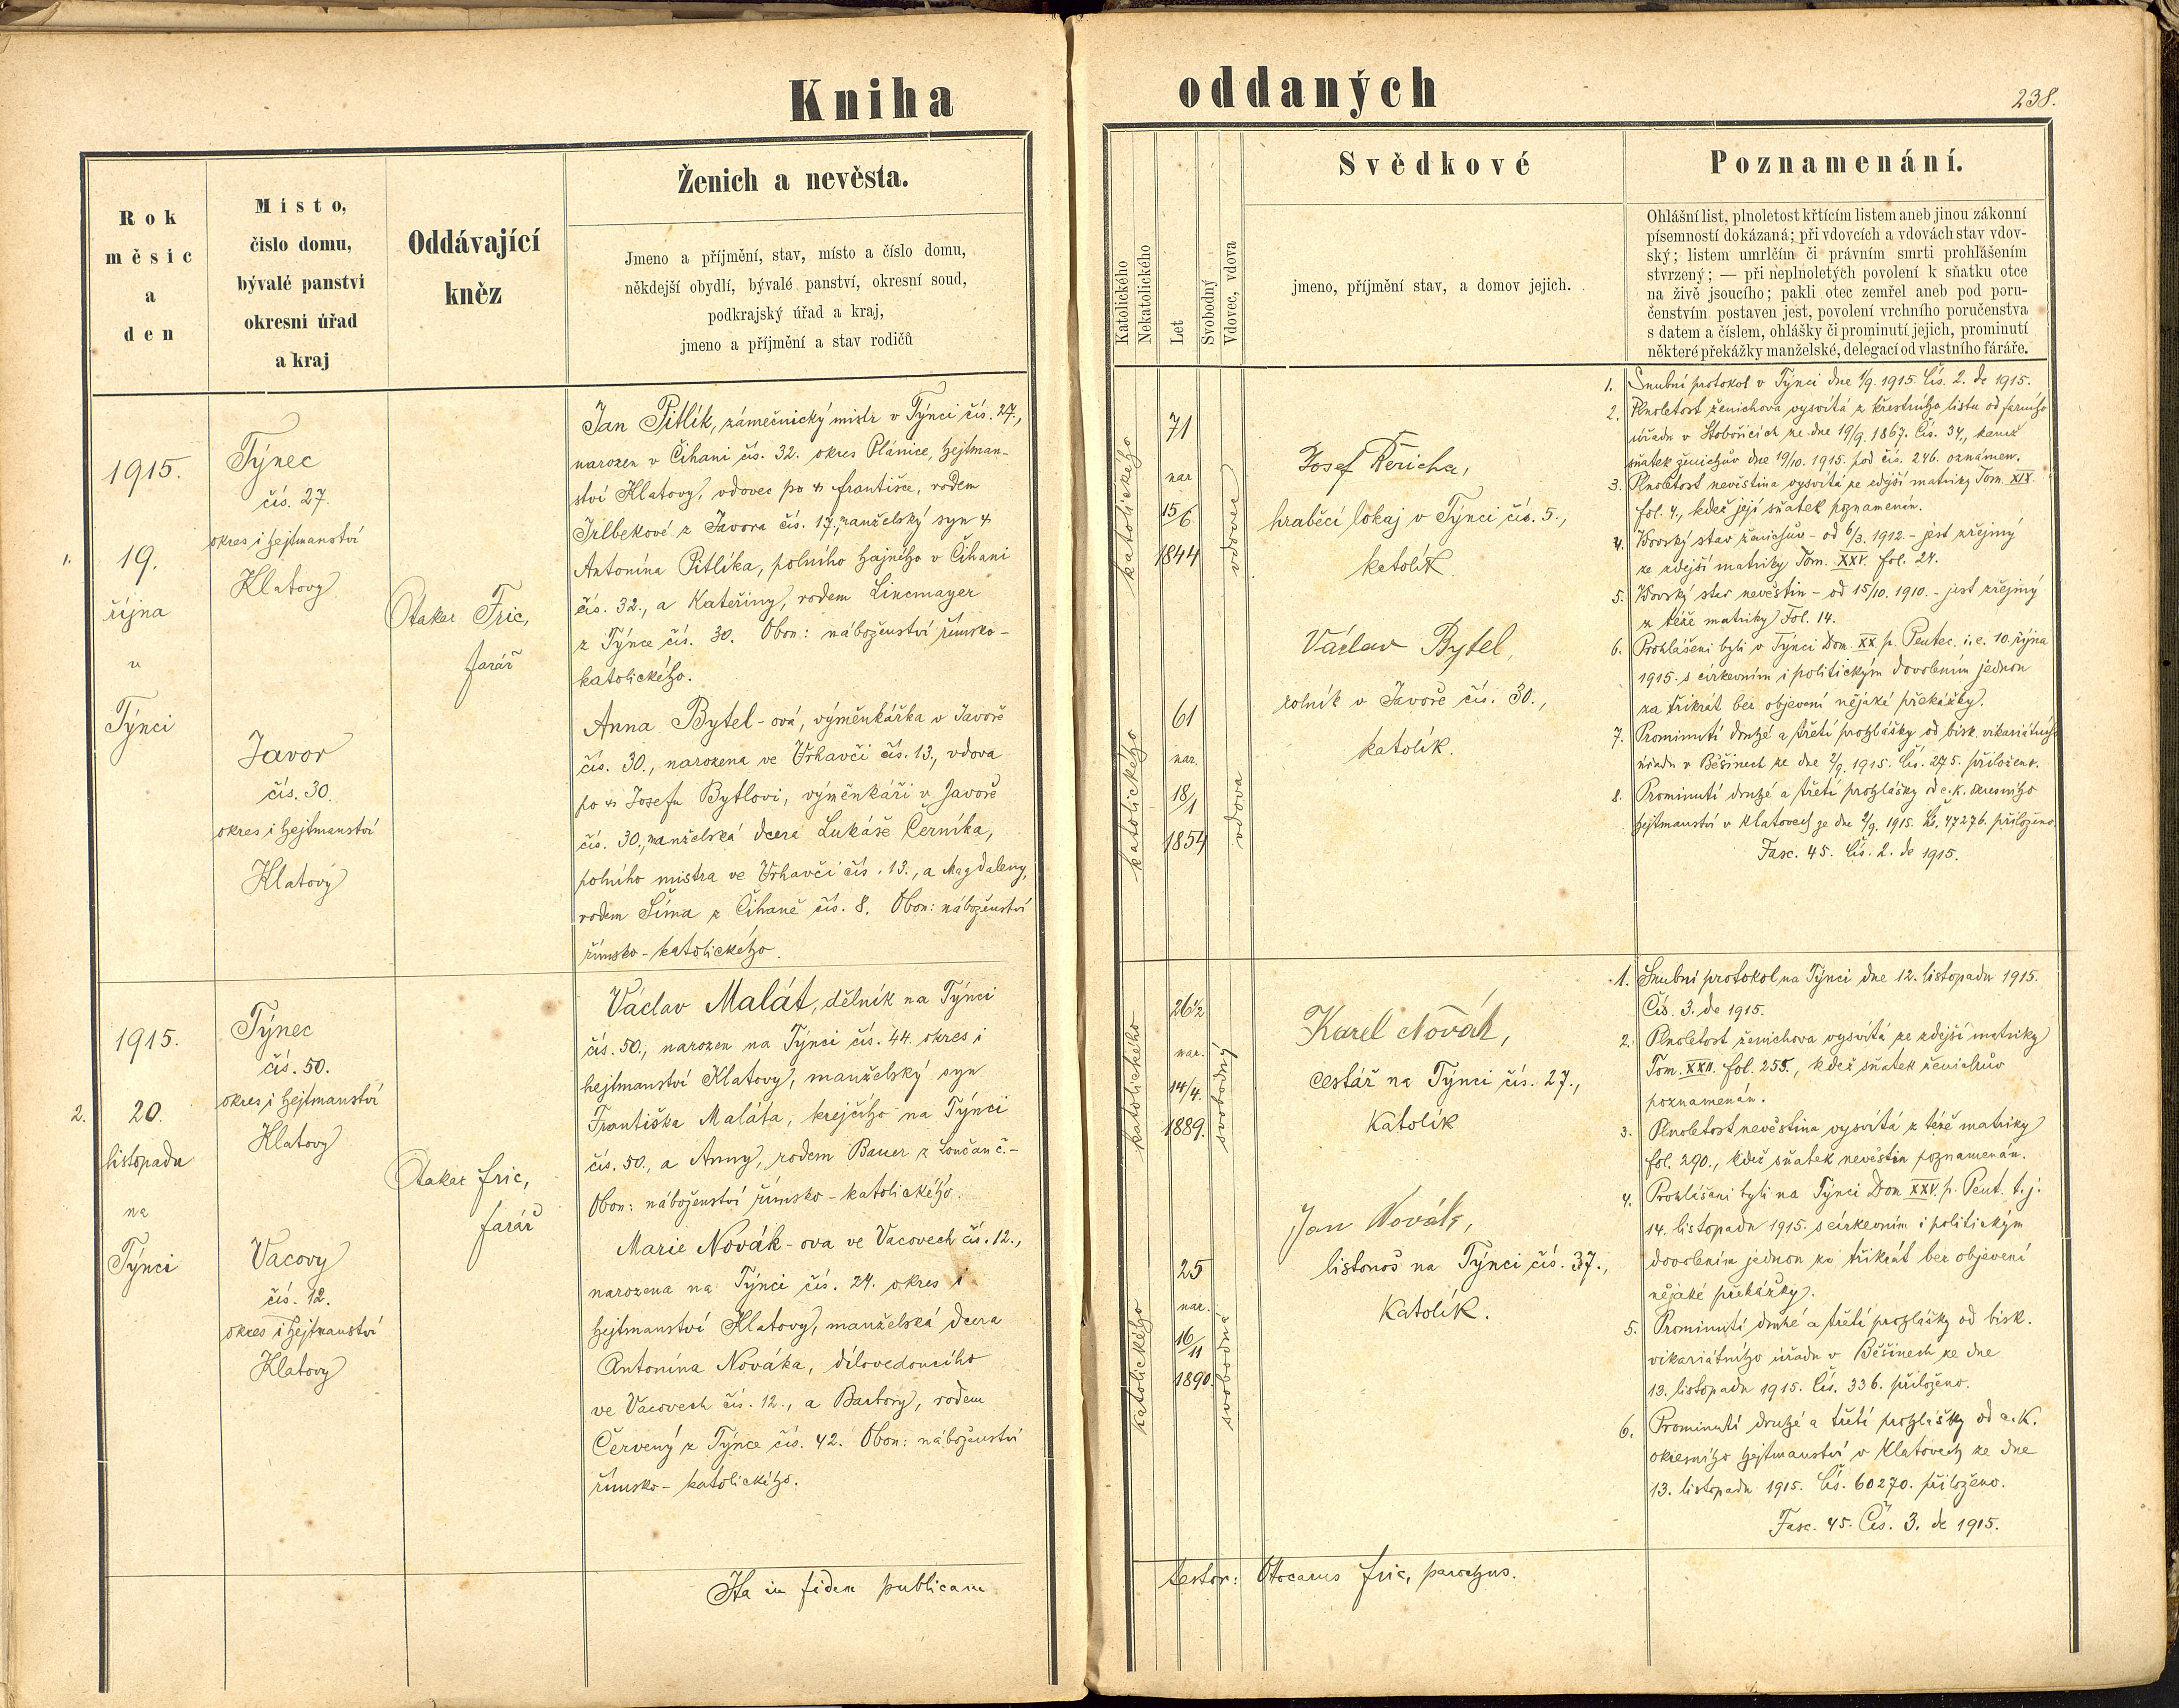 Kniha
oddaných
238.
Rok
měsíc
a
den
Místo,
číslo domu,
bývalé panství
okresní úřad
a kraj
Oddávající
kněz
Ženich a nevěsta.
Jmeno a příjmění, stav, místo a číslo domu,
někdejší obydlí, bývalé panství, okresní soud,
podkrajský úřad a kraj,
jmeno a příjmění a stav rodičů
Katolického
Nekatolického
Let
Svobodný
Vdovec, vdova
Svědkové
jmeno, příjmění stav, a domov jejich.
Poznamenání.
Ohlášní list, plnoletost křtícím listem aneb jinou zákonní
písemností dokázaná; při vdovcích a vdovách stav vdov-
ský; listem umrlčím či právním smrti prohlášením
stvrzený; — při neplnoletých povolení k sňatku otce
na živě jsoucího; pakli otec zemřel aneb pod poru-
čenstvím postaven jest, povolení vrchního poručenstva
s datem a číslem, ohlášky či prominutí jejich, prominutí
některé překážky manželské, delegací od vlastního fáráře.
1.
1915.
19.
října
v
Týnci
Týnec
čís. 27.
okres i hejtmanství
Klatovy
Javor
čís. 30.
okres i hejtmanství
Klatovy
Otakar Fric,
farář
Jan Pitlík, zámečnický mistr v Týnci čís. 27.,
narozen v Čihani čís. 32. okres Plánice, hejtman-
ství Klatovy, vdovec po † Františce, rodem
Irlbekové z Javora čís. 17., manželský syn †
Antonína Pitlíka, polního hajného v Čihani
čís. 32., a Kateřiny, rodem Lincmayer
z Týnce čís. 30. Obou: náboženství římsko-
katolického.
Anna Bytel-ová, výměnkářka v Javoře
čís. 30., narozena ve Vrhavči čís. 13., vdova
po † Josefu Bytlovi, výměnkáři v Javoře
čís. 30., manželská dcera Lukáše Černíka,
polního mistra ve Vrhavči čís. 13., a Magdaleny,
rodem Šíma z Čihaně čís. 8. Obou: náboženství
římsko-katolického.
katolického
71
nar
15/6
1844
vdovec
katolického
61
nar.
18/1
1854
vdova
Josef Řericha,
hraběcí lokaj v Týnci čís. 5.,
katolík
Václav Bytel,
rolník v Javoře čís. 30.,
katolík.
1. Snubní protokol v Týnci dne 1/9. 1915. Čís. 2. de 1915.
2. Plnoletost ženichova vysvítá z křestního listu od farního
úřadu v Stobořicích ze dne 19/9. 1867. Čís. 34., kamž
sňatek ženichův dne 19/10. 1915. pod čís. 246. oznámen.
3. Plnoletost nevěstina vysvítá ze zdejší matriky Tom. XIX.
fol. 4., kdež její sňatek poznamenán.
4. Vdovský stav ženichův - od 6/3. 1912. - jest zřejmý
ze zdejší matriky Tom. XXV. fol. 24.
5. Vdovský stav nevěstin - od 15/10. 1910. - jest zřejmý
z téže matriky Fol. 14.
6. Prohlášeni byli v Týnci Dom. XX. p. Pentec. i. e. 10. října
1915. s církevním i politickým dovolením jednou
za třikrát bez objevení nějaké překážky.
7. Prominutí druhé a třetí prohlášky od bisk. vikariátního
úřadu v Běšinech ze dne 2/9. 1915. Čís. 275. přiloženo.
8. Prominutí druhé a třetí prohlášky od c. k. okresního
hejtmanství v Klatovech ze dne 2/9. 1915. Čís. 47276. přiloženo.
Fasc. 45. Čís. 2. de 1915.
2.
1915.
20.
listopadu
na
Týnci
Týnec
čís. 50.
okres i hejtmanství
Klatovy
Vacovy
čís. 12.
okres i hejtmanství
Klatovy
Otakar Fric,
farář
Václav Malát, dělník na Týnci
čís. 50., narozen na Týnci čís. 44. okres i
hejtmanství Klatovy, manželský syn
Františka Maláta, krejčího na Týnci
čís. 50., a Anny, rodem Bauer z Loučan č.-
Obou: náboženství římsko-katolického.
Marie Novák-ova ve Vacovech čís. 12.,
narozena na Týnci čís. 24. okres i
hejtmanství Klatovy, manželská dcera
Antonína Nováka, dílovedoucího
ve Vacovech čís. 12., a Barbory, rodem
Červený z Týnce čís. 42. Obou: náboženství
římsko-katolického.
katolického
26 1/2
nar.
14/4.
1889.
svobodný
katolického
25
nar.
16/11
1890.
svobodná
Karel Novák,
cestář na Týnci čís. 27.,
Katolík
Jan Novák,
listonoš na Týnci čís. 37.,
Katolík.
1. Snubní protokol na Týnci dne 12. listopadu 1915.
Čís. 3. de 1915.
2. Plnoletost ženichova vysvítá ze zdejší matriky
Tom. XXII. fol. 255., kdež sňatek ženichův
poznamenán.
3. Plnoletost nevěstina vysvítá z téže matriky
fol. 290., kdež sňatek nevěstin poznamenán.
4. Prohlášeni byli na Týnci Dom XXV. p. Pent. t. j.
14. listopadu 1915. s církevním i politickým
dovolením jednou za třikrát bez objevení
nějaké překážky.
5. Prominutí druhé a třetí prohlášky od bisk.
vikariátního úřadu v Běšinech ze dne
13. listopadu 1915. Čís. 336. přiloženo.
6. Prominutí druhé a třetí prohlášky od c. K.
okresního hejtmanství v Klatovech ze dne
13. listopadu 1915. Čís. 60270. přiloženo.
Fasc. 45. Čís. 3. de 1915.
Ita in fidem publicam
testor: Otocarus Fric, parochus.